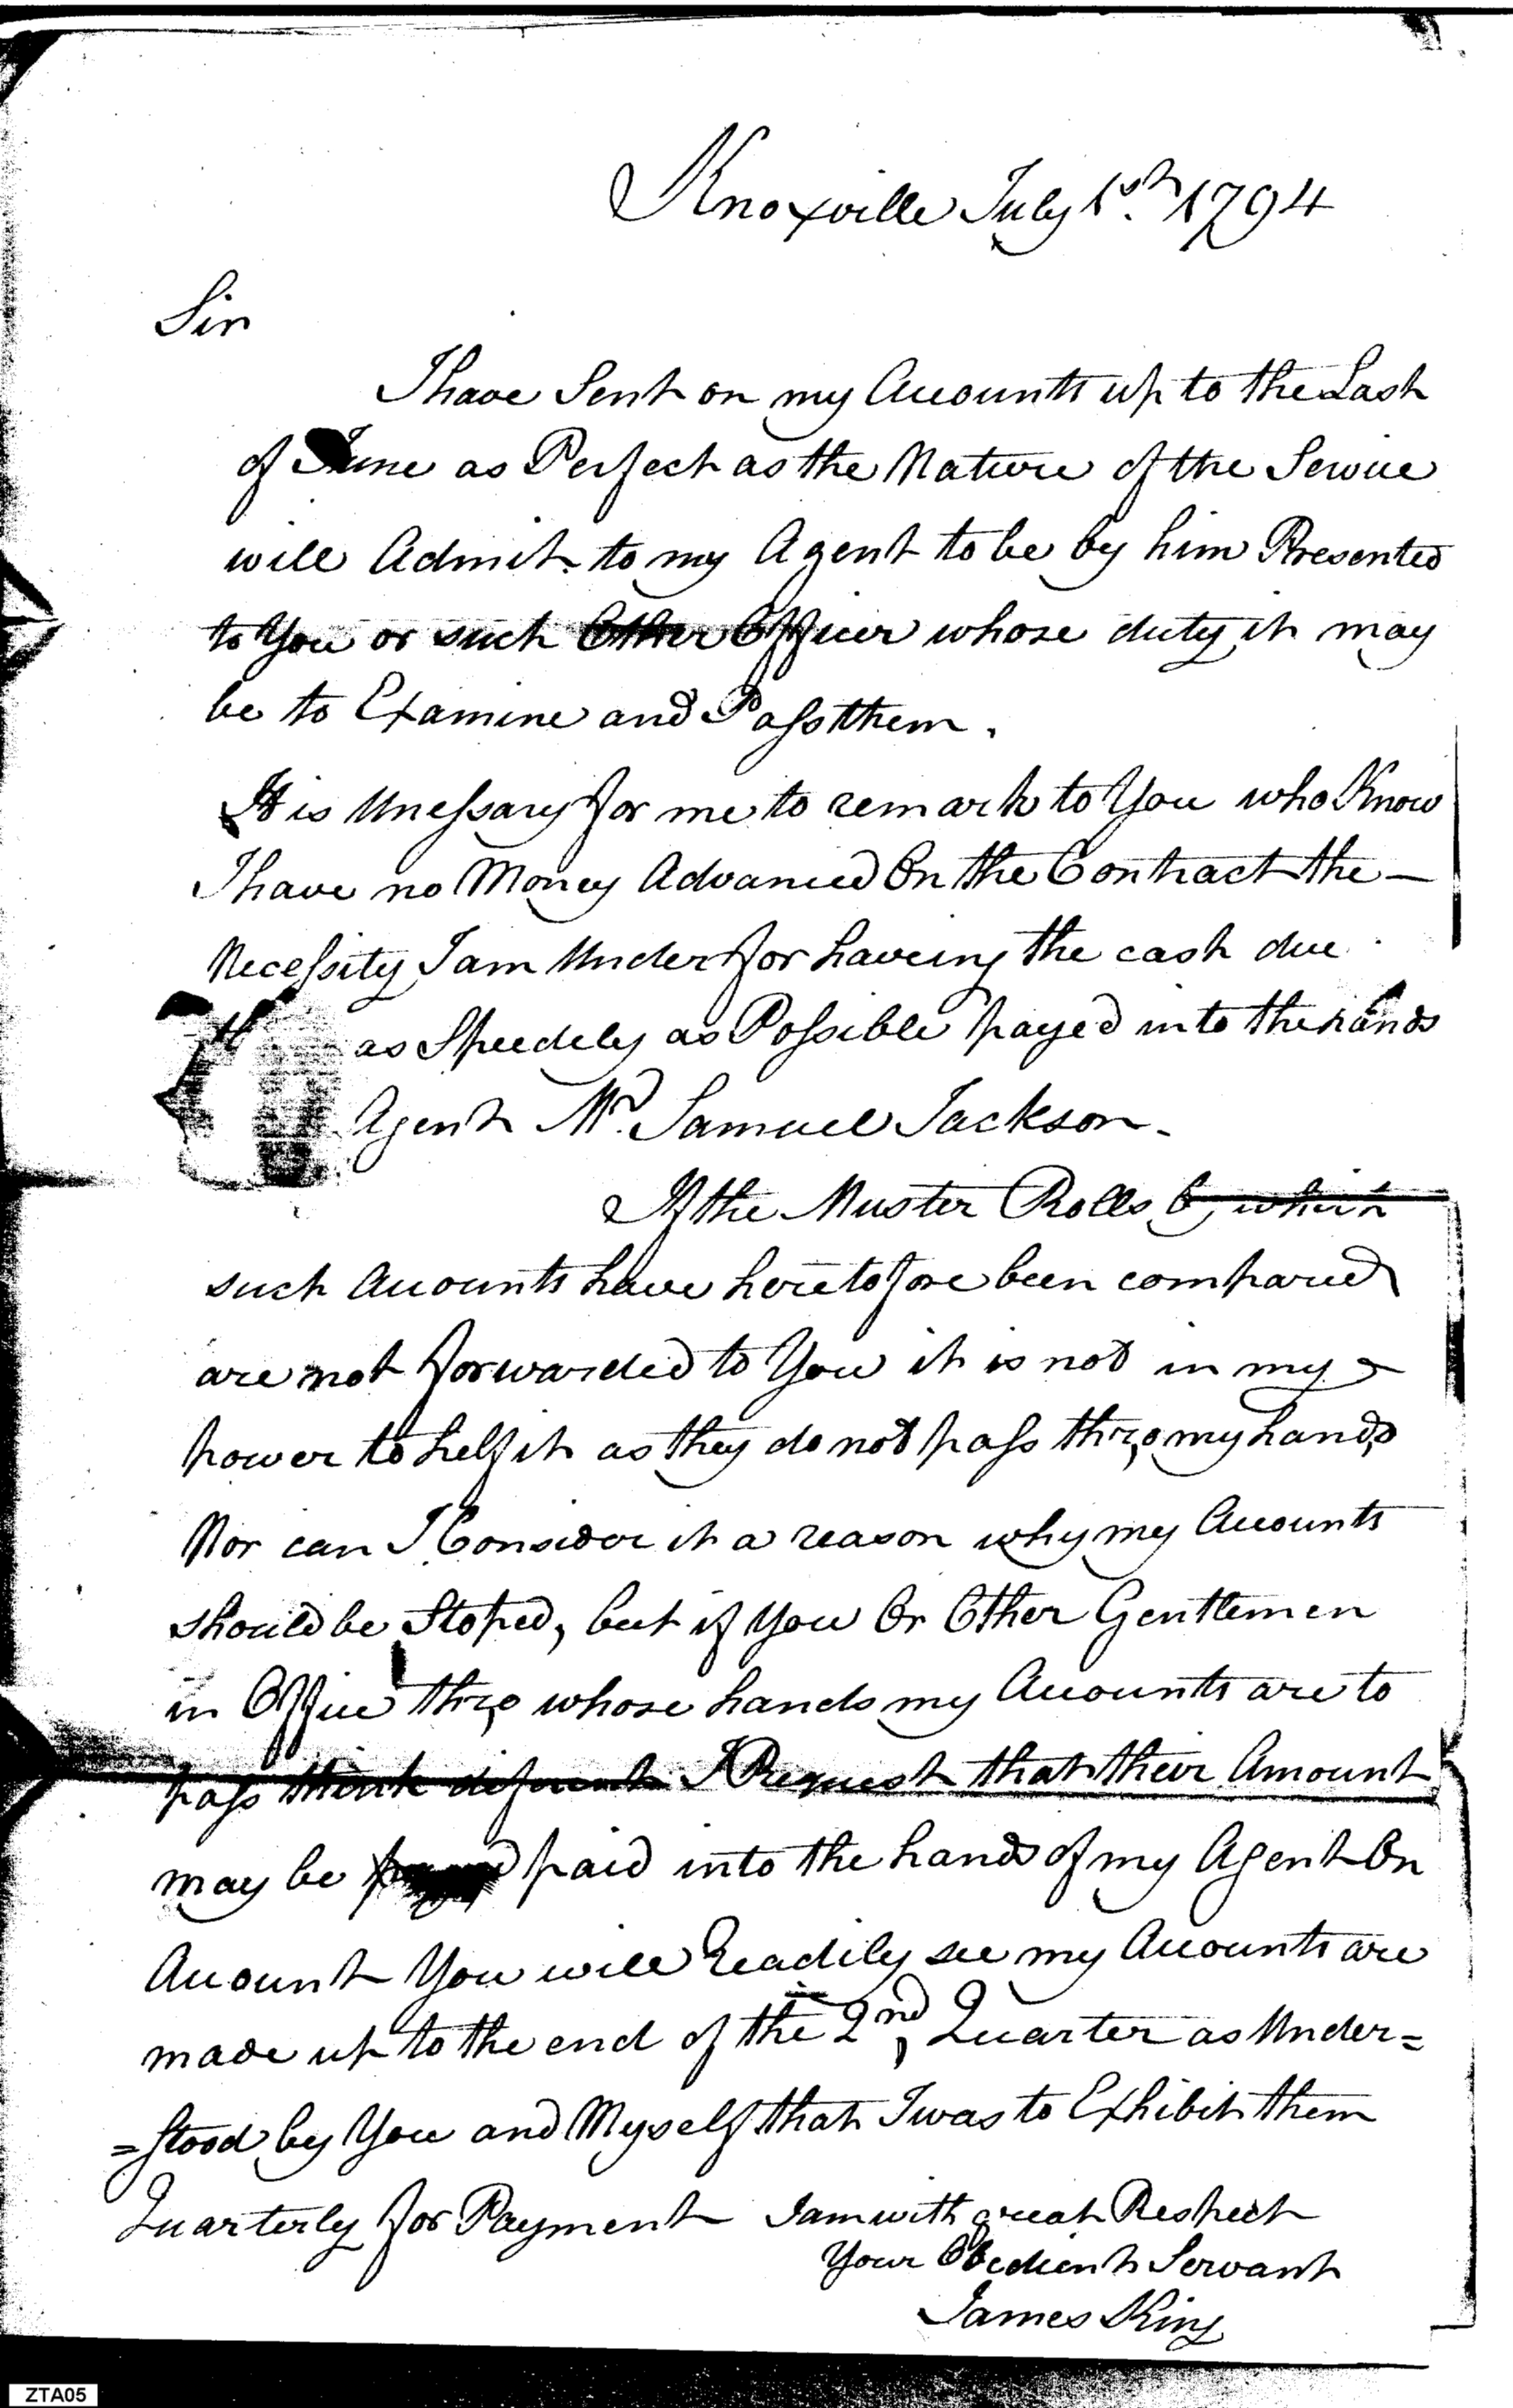 Knoxville July 1st. 1794
Sir
I have Sent on my Accounts up to the Last
of June as Perfect as the Nature of the Service
will Admit to my Agent to be by him Presented
to You or such Other Officer whose duty it may
be to Examine and Pass them.
It is Unessary for me to remark to You who Know
I have no Money Advanced On the Contract the —
Necessity I am Under for haveing the cash due
as Speedely as Possible payed into the hands
Agent Mr. Samuel Jackson.
If the Muster Rolls by which
such Accounts have heretofore been compared
are not forwarded to You it is not in my
power to help it as they do not pass thro my hands
Nor can I Consider it a reason why my Accounts
should be Stoped, but if You Or Other Gentlemen
in Office thro whose hands my Accounts are to
pass think I Request that their Amount
may be paid into the hands of my Agent On
Account You will Readily see my Accounts are
made up to the end of the 2nd, Quarter as Under=
=stood by You and Myself that I was to Exhibit them
Quarterly for Payment I am with great Respect
Your Obedient Servant
James King
ZTA05